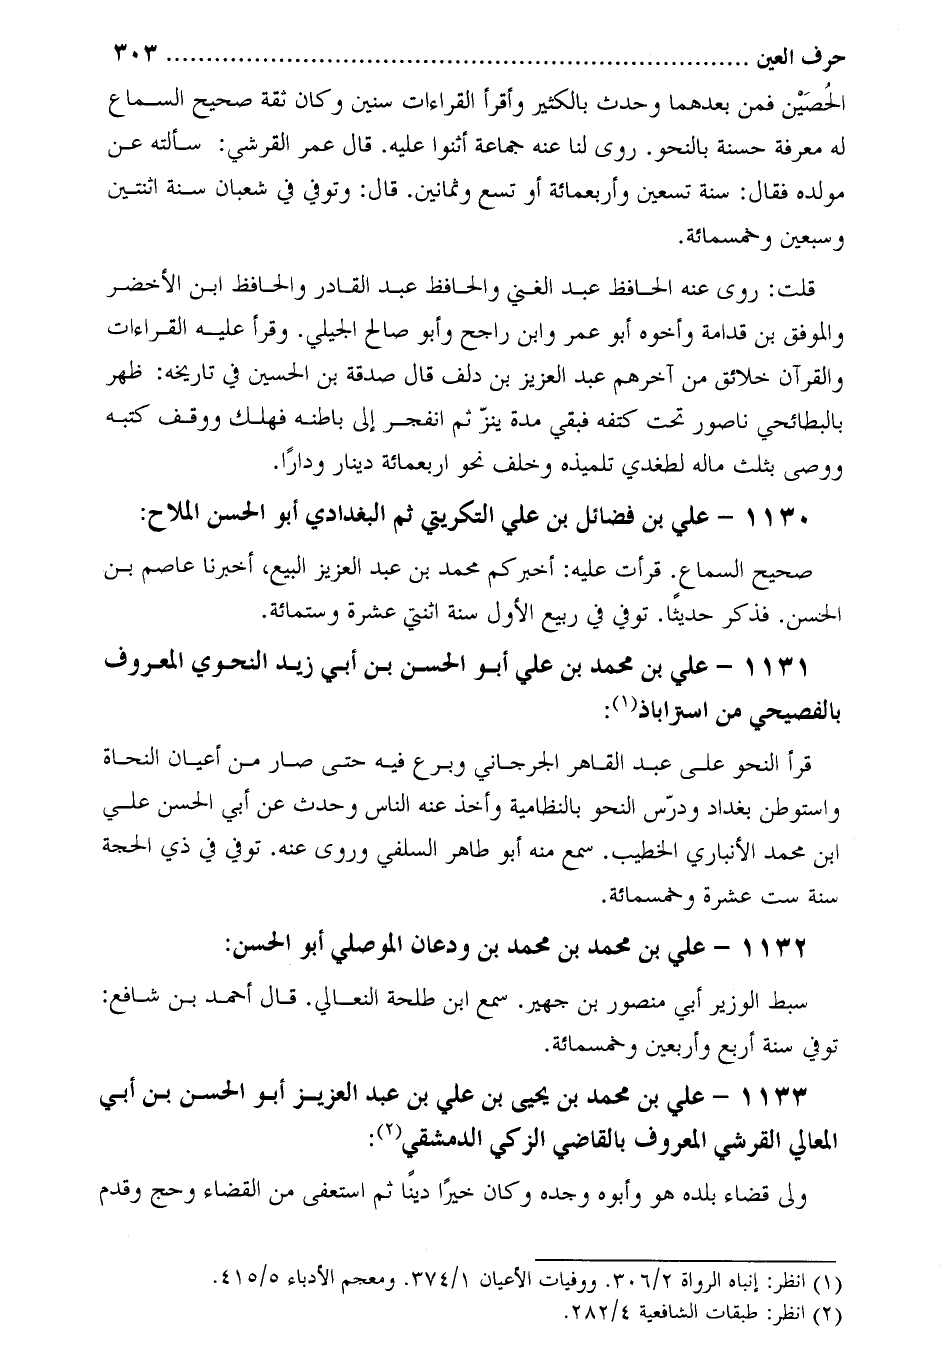 حرف العين ........................................................................... ٣٠٣
الحُصَيْن فمن بعدهما وحدث بالكثير وأقرأ القراءات سنين وكان ثقة صحيح السماع
له معرفة حسنة بالنحو. روى لنا عنه جماعة أثنوا عليه. قال عمر القرشي: سألته عن
مولده فقال: سنة تسعين وأربعمائة أو تسع وثمانين. قال: وتوفي في شعبان سنة اثنتين
وسبعين وخمسمائة.
قلت: روى عنه الحافظ عبد الغني والحافظ عبد القادر والحافظ ابن الأخضر
والموفق بن قدامة وأخوه أبو عمر وابن راجح وأبو صالح الجيلي. وقرأ عليه القراءات
والقرآن خلائق من آخرهم عبد العزيز بن دلف قال صدقة بن الحسين في تاريخه: ظهر
بالبطائحي ناصور تحت كتفه فبقي مدة ينزّ ثم انفجر إلى باطنه فهلك ووقف كتبه
ووصى بثلث ماله لطغدي تلميذه وخلف نحو اربعمائة دينار ودارًا.
١١٣٠ – علي بن فضائل بن علي التكريتي ثم البغدادي أبو الحسن الملاح:
صحيح السماع. قرأت عليه: أخبركم محمد بن عبد العزيز البيع، أخبرنا عاصم بن
الحسن. فذكر حديثًا. توفي في ربيع الأول سنة اثنتي عشرة وستمائة.
١١٣١ – علي بن محمد بن علي أبو الحسن بن أبي زيد النحوي المعروف
بالفصيحي من استراباذ(١):
قرأ النحو على عبد القاهر الجرجاني وبرع فيه حتى صار من أعيان النحاة
واستوطن بغداد ودرّس النحو بالنظامية وأخذ عنه الناس وحدث عن أبي الحسن علي
ابن محمد الأنباري الخطيب. سمع منه أبو طاهر السلفي وروى عنه. توفي في ذي الحجة
سنة ست عشرة وخمسمائة.
١١٣٢ – علي بن محمد بن محمد بن ودعان الموصلي أبو الحسن:
سبط الوزير أبي منصور بن جهير. سمع ابن طلحة النعالي. قال أحمد بن شافع:
توفي سنة أربع وأربعين وخمسمائة.
١١٣٣ – علي بن محمد بن يحيى بن علي بن عبد العزيز أبو الحسن بن أبي
المعالي القرشي المعروف بالقاضي الزكي الدمشقي(٢):
ولى قضاء بلده هو وأبوه وجده وكان خيرًا دينًا ثم استعفى من القضاء وحج وقدم
(١) انظر: إنباه الرواة ٣٠٦/٢. ووفيات الأعيان ٣٧٤/١. ومعجم الأدباء ٤١٥/٥.
(٢) انظر: طبقات الشافعية ٢٨٢/٤.